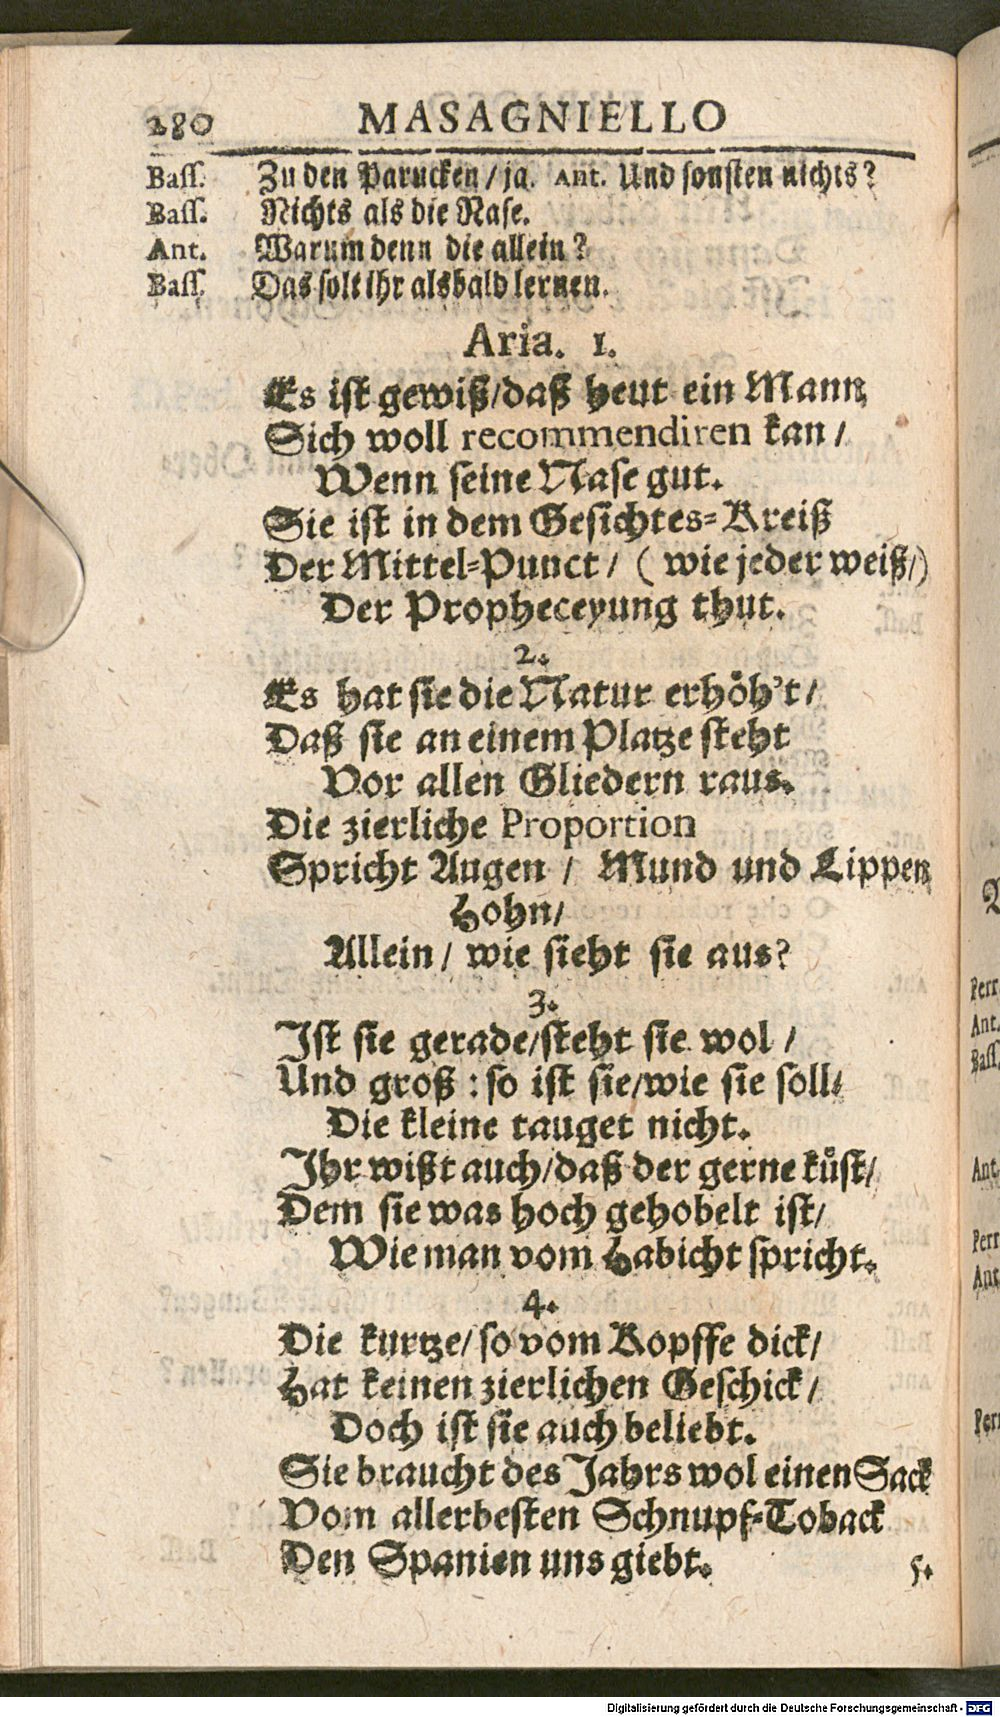 280 MASAGNIELLO
Bass. Zu den Parucken / ja. Ant. Und sonsten nichts?
Bass. Nichts als die Nase.
Ant. Warum denn die allein?
Bass. Das solt ihr alsbald lernen.
Aria. 1.
Es ist gewiß / daß heut ein Mann
Sich woll recommendiren kan /
Wenn seine Nase gut.
Sie ist in dem Gesichtes-Kreiß
Der Mittel-Punct / ( wie jeder weiß /)
Der Propheceyung thut.
2.
Es hat sie die Natur erhöh't /
Daß sie an einem Platze steht
Vor allen Gliedern raus.
Die zierliche Proportion
Spricht Augen / Mund und Lippen
Hohn /
Allein / wie sieht sie aus?
3.
Ist sie gerade / steht sie wol /
Und groß : so ist sie / wie sie soll /
Die kleine tauget nicht.
Ihr wißt auch / daß der gerne küst /
Dem sie was hoch gehobelt ist /
Wie man vom Habicht spricht.
4.
Die kurtze / so vom Kopffe dick /
Hat keinen zierlichen Geschick /
Doch ist sie auch beliebt.
Sie braucht des Jahrs wol einen Sack
Vom allerbesten Schnupf-Toback
Den Spanien uns giebt.
5.
Perr
Ant.
Bass.
Ant.
Perr
Ant
Perr
Digitalisierung gefördert durch die Deutsche Forschungsgemeinschaft - DFG